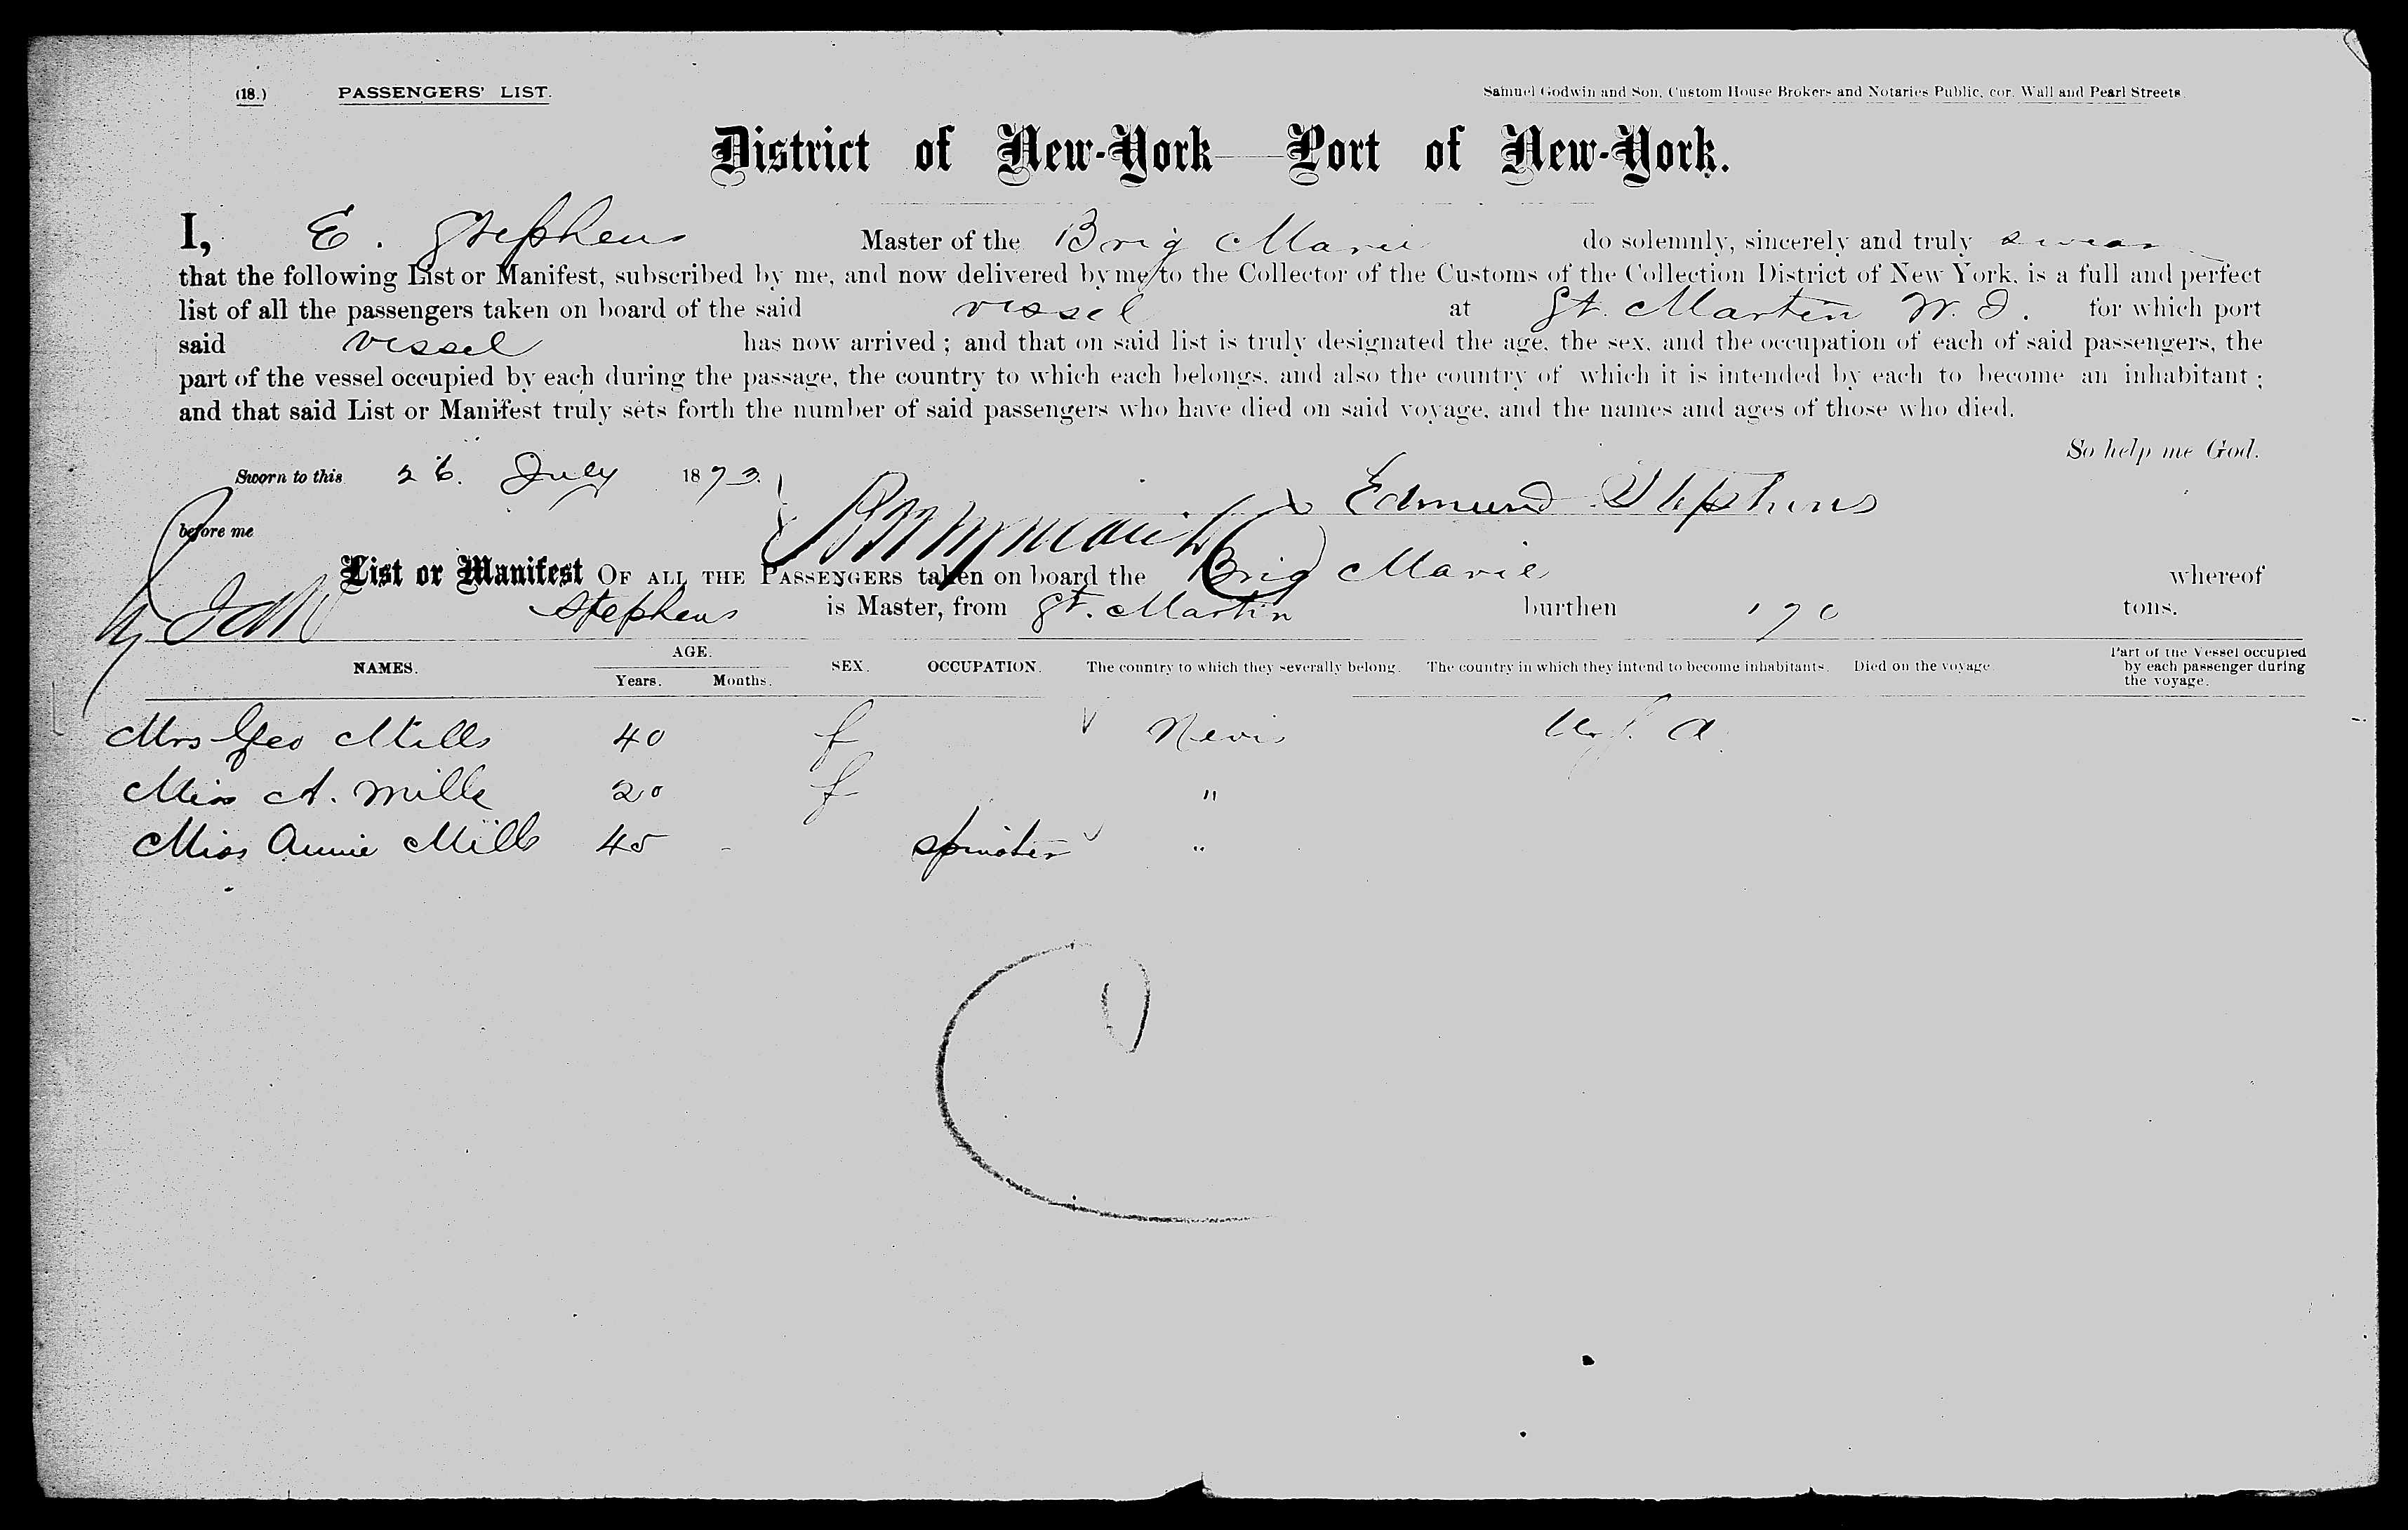 (18.) PASSENGERS' LIST. Samuel Godwin and Son, Custom House Brokers and Notaries Public, cor. Wall and Pearl Streets
District of New-York—Port of New-York.
I, E. Stephens Master of the Brig Marie do solemnly, sincerely and truly swear
that the following List or Manifest, subscribed by me, and now delivered by me to the Collector of the Customs of the Collection District of New York, is a full and perfect
list of all the passengers taken on board of the said vessel at St. Martin W. I. for which port
said vessel has now arrived; and that on said list is truly designated the age, the sex, and the occupation of each of said passengers, the
part of the vessel occupied by each during the passage, the country to which each belongs, and also the country of which it is intended by each to become an inhabitant;
and that said List or Manifest truly sets forth the number of said passengers who have died on said voyage, and the names and ages of those who died.
So help me God.
Sworn to this 26. July 1873.
Edmund Stephens
before me
List or Manifest OF ALL THE PASSENGERS taken on board the Brig Marie whereof
Stephens is Master, from St. Martin burthen 190 tons.
NAMES. AGE. Years. Months. SEX. OCCUPATION. The country to which they severally belong. The country in which they intend to become inhabitants. Died on the voyage. Part of the Vessel occupied by each passenger during the voyage.
Mrs Geo Mills 40 f Nevis U.S. A.
Miss A. Mills 20 f "
Miss Annie Mills 45 - spinster "